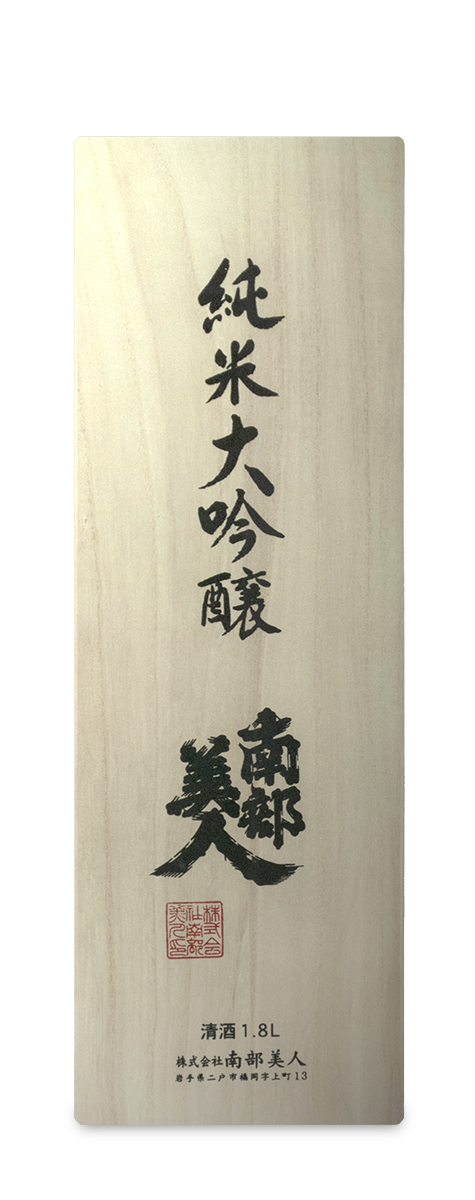 純米大吟醸
南部
美人
株式会
社南部
美人印
清酒1.8L
株式会社南部美人
岩手県二戸市福岡字上町13